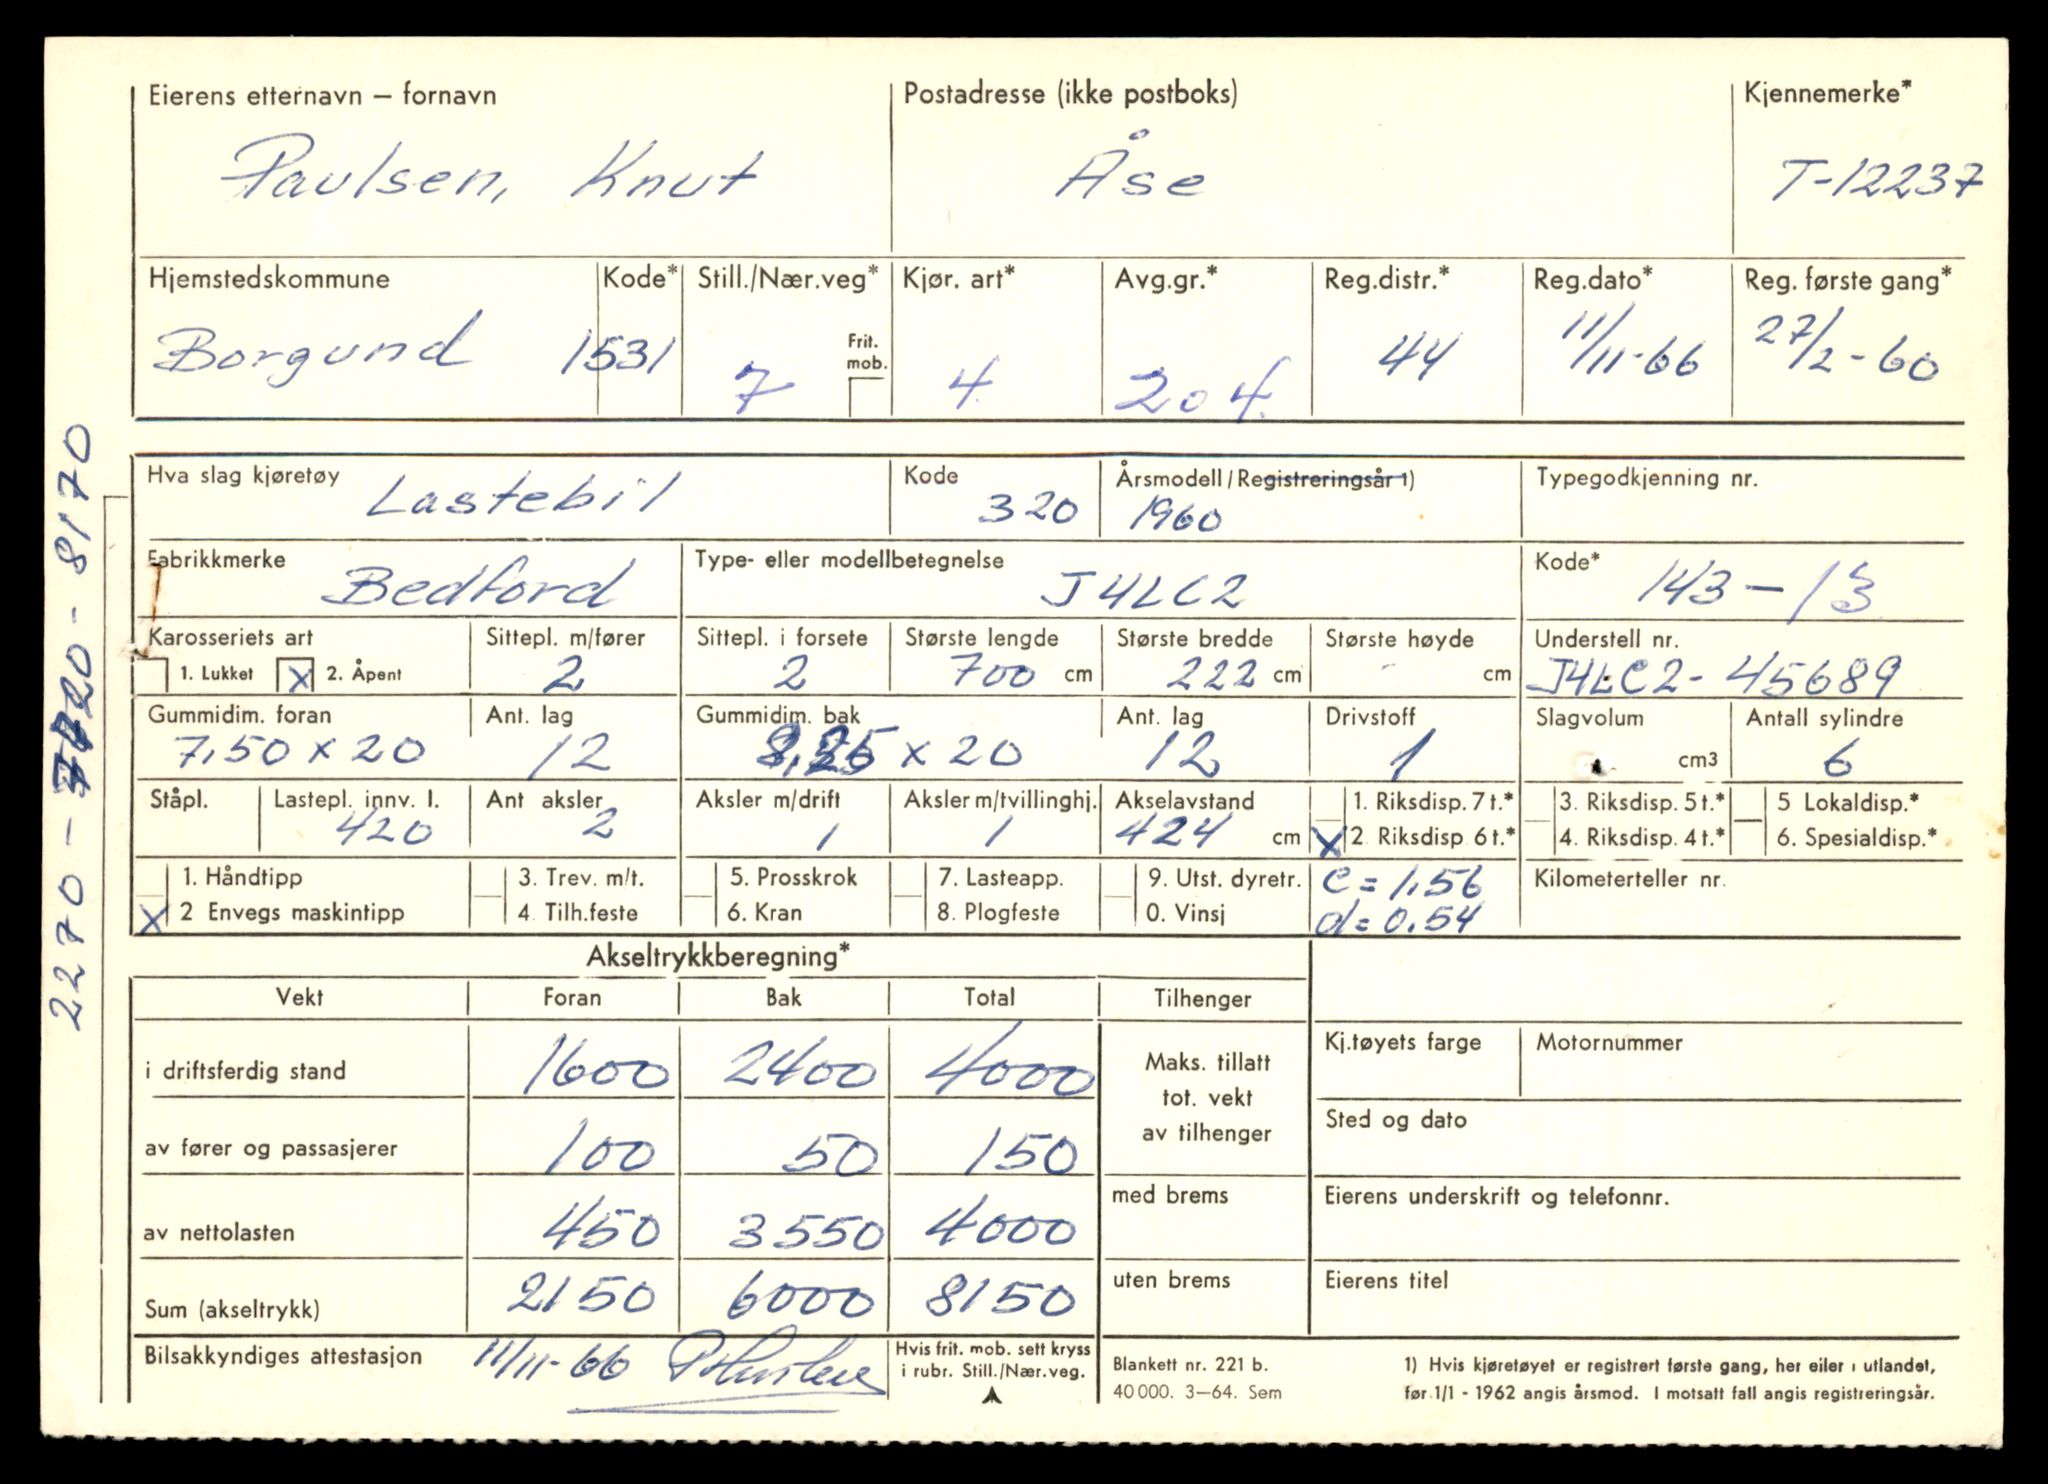 Eierens etternavn – fornavn Postadresse (ikke postboks) Kjennemerke*
Paulsen, Knut Åse T-12237
Hjemstedskommune Kode* Still./Nær.veg* Kjør. art* Avg.gr.* Reg.distr.* Reg.dato* Reg. første gang*
Borgund 1531 7 Frit. mob. 4 204. 44 11/11-66 27/2-60
Hva slag kjøretøy Lastebil Kode 320 Årsmodell/Registreringsår 1) 1960 Typegodkjenning nr.
Fabrikkmerke Bedford Type- eller modellbetegnelse J4LC2 Kode* 143-13
Karosseriets art Sittepl. m/fører Sittepl. i forsete Største lengde Største bredde Største høyde Understell nr.
1. Lukket X 2. Åpent 2 2 700 cm 222 cm cm J4LC2-45689
Gummidim. foran Ant. lag Gummidim. bak Ant. lag Drivstoff Slagvolum Antall sylindre
7,50 x 20 12 8,25 x 20 12 1 cm3 6
Ståpl. Lastepl. innv. l. Ant aksler Aksler m/drift Aksler m/tvillinghj. Akselavstand 1. Riksdisp. 7 t.* 3. Riksdisp. 5 t.* 5 Lokaldisp.*
420 2 1 1 424 cm X 2 Riksdisp 6 t.* 4. Riksdisp. 4 t.* 6. Spesialdisp.*
1. Håndtipp 3. Trev. m/t. 5. Prosskrok 7. Lasteapp. 9. Utst. dyretr. c = 1,56 Kilometerteller nr.
X 2 Envegs maskintipp 4. Tilh.feste 6. Kran 8. Plogfeste 0. Vinsj d = 0.54
Akseltrykkberegning*
Vekt Foran Bak Total Tilhenger
i driftsferdig stand 1600 2400 4000 Maks. tillatt tot. vekt av tilhenger Kj.tøyets farge Motornummer
av fører og passasjerer 100 50 150 Sted og dato
av nettolasten 450 3550 4000 med brems Eierens underskrift og telefonnr.
Sum (akseltrykk) 2150 6000 8150 uten brems Eierens titel
Bilsakkyndiges attestasjon 11/11-66 Hvis frit. mob. sett kryss i rubr. Still./Nær.veg.
Blankett nr. 221 b.
40 000. 3–64. Sem
1) Hvis kjøretøyet er registrert første gang, her eiler i utlandet,
før 1/1 - 1962 angis årsmod. I motsatt fall angis registreringsår.
2270 - 7720 - 8170